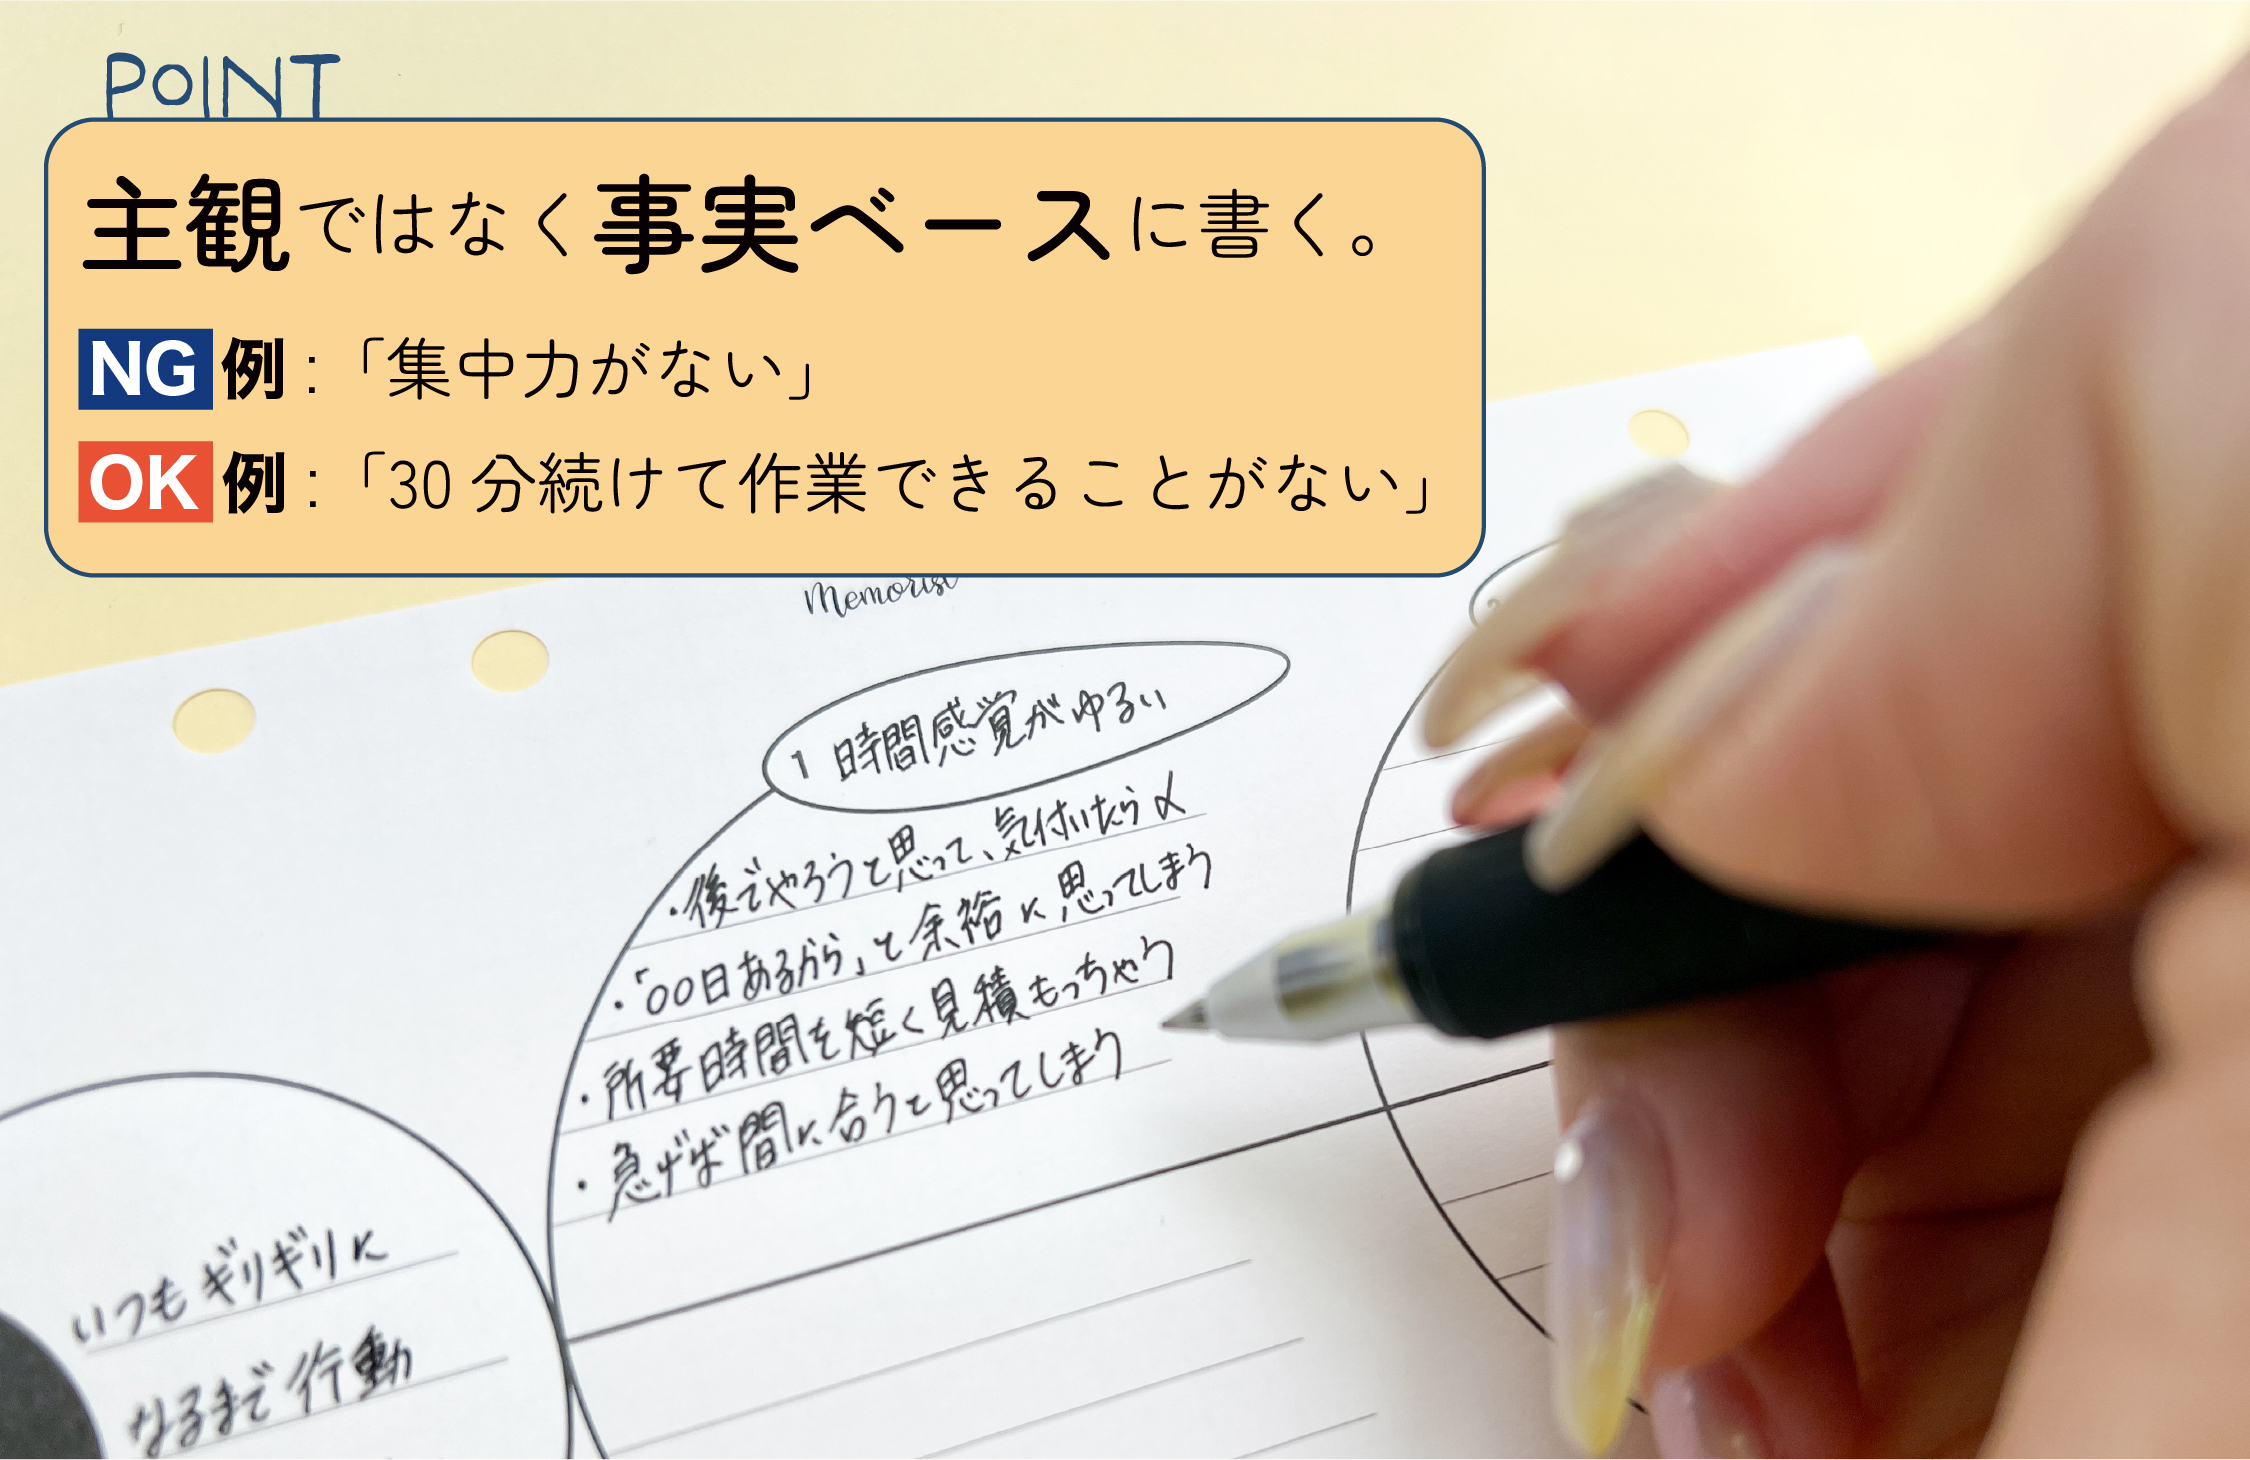 POINT
主観ではなく事実ベースに書く。
NG 例：「集中力がない」
OK 例：「30 分続けて作業できることがない」
Memorist
1 時間感覚がゆるい
・後でやろうと思って、気付いたら〆
・「〇〇日あるから」と余裕に思ってしまう
・所要時間を短く見積もっちゃう
・急げば間に合うと思ってしまう
いつもギリギリに
なるまで行動